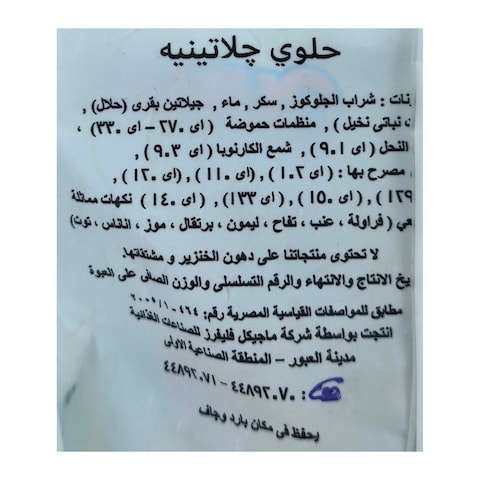 حلوي چلاتينيه
نات : شراب الجلوكوز , سكر , ماء , جيلاتين بقرى (حلال) ,
نباتى نخيل) , منظمات حموضة ( اى ٢٧٠ – اى ٣٣٠) ،
النحل ( اى ٩٠١) , شمع الكارنوبا ( اى ٩٠٣) ,
مصرح بها : ( اى ١٠٢) , (اى ١١٠) , (اى ١٢٠) ,
١٢٩) , (اى ١٥٠) , (اى ١٣٣) , (اى ١٤٠) نكهات مماثلة
عي ( فراولة ، عنب ، تفاح ، ليمون ، برتقال ، موز ، اناناس ، توت)
لا تحتوى منتجاتنا على دهون الخنزير و مشتقاتها.
يخ الانتاج والانتهاء والرقم التسلسلى والوزن الصافى على العبوة
مطابق للمواصفات القياسية المصرية رقم: ٤٦٤-٢٠٠٥/١
انتجت بواسطة شركة ماجيكل فليفرز للصناعات الغذائية
مدينة العبور – المنطقة الصناعية الاولى
: ٤٤٨٩٢٠٧٠ – ٤٤٨٩٢٠٧١
يحفظ فى مكان بارد وجاف